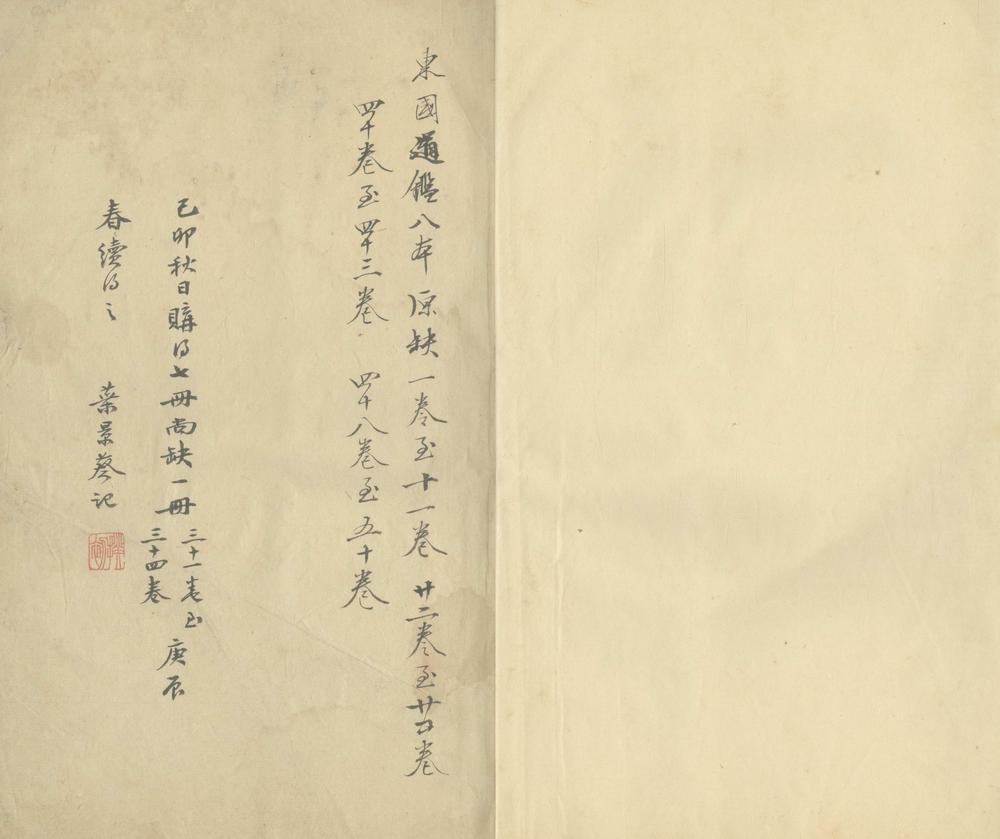 東國通鑑八本 原缺一卷至十一卷 廿二卷至廿四卷
四十卷至四十三卷 四十八卷至五十卷
己卯秋日購得七冊尚缺一冊
三十一卷至
三十四卷
庚辰
春續得之 葉景葵記